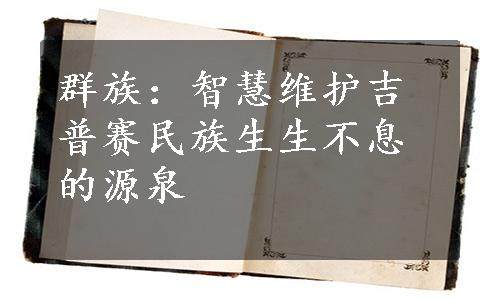 群族：智慧维护吉
普赛民族生生不息
的源泉